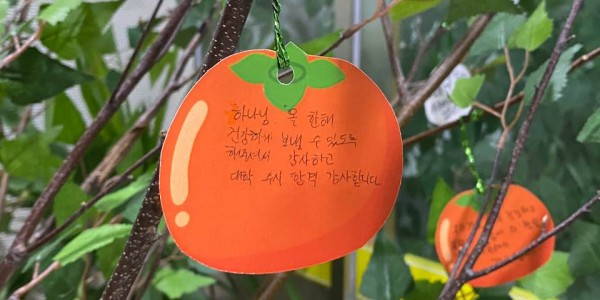 하나님 올 한해
건강하게 보낼 수 있도록
해주셔서 감사하고
대학 수시 합격 감사합니다